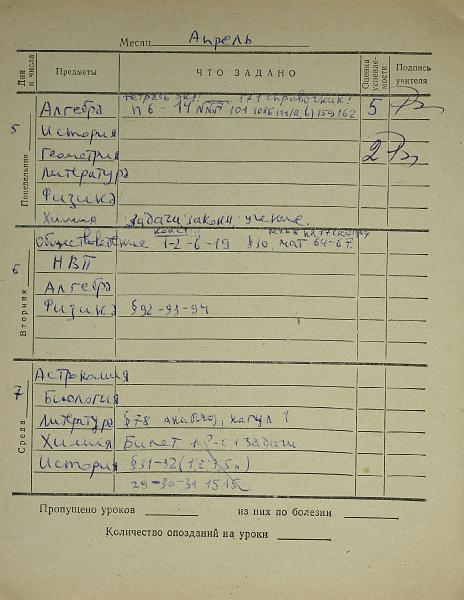 Месяц Апрель
Дни и числа Предметы ЧТО ЗАДАНО Оценка успеваемости Подпись учителя
5 Понедельник
тетрадь 171 справочник!
Алгебра п 6 - 14 101 159 162 5
История
Геометрия 2
Литература
Физика
Химия задачи, закон. учение.
6 Вторник
конст.
Обществоведение 1-2-6-19 §30, мат 64-67.
НВП
Алгебра
Физика §92-93-94
7 Среда
Астрономия
Биология
Литература §78
Химия Билет задачи
История §31-32
29-30-31 15.15
Пропущено уроков из них по болезни
Количество опозданий на уроки